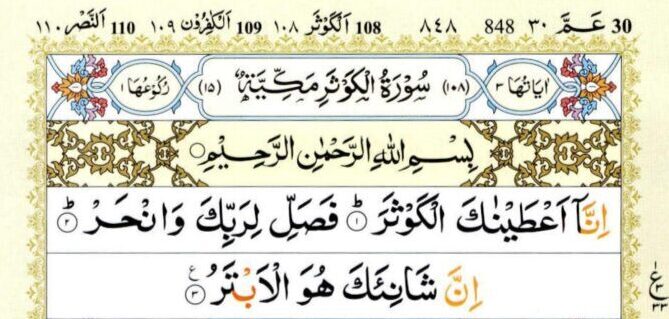 30 عَمَّ ٣٠ 848 ٨٤٨ 108 اَلْكَوْثَر ١٠٨ 109 اَلْكٰفِرُوْن ١٠٩ 110 اَلنَّصْر ١١٠
اٰيَاتُهَا ٣ (١٠٨) سُوْرَةُ الْكَوْثَرِ مَكِّيَّةٌ (١٥) رُكُوْعُهَا ١
بِسْمِ اللهِ الرَّحْمٰنِ الرَّحِيْمِ
اِنَّآ اَعْطَيْنٰكَ الْكَوْثَرَ ؕ‏ ١ فَصَلِّ لِرَبِّكَ وَانْحَرْ ؕ‏ ٢
اِنَّ شَانِئَكَ هُوَ الْاَبْتَرُ ٣ ع
١
ع ٣
٣٣